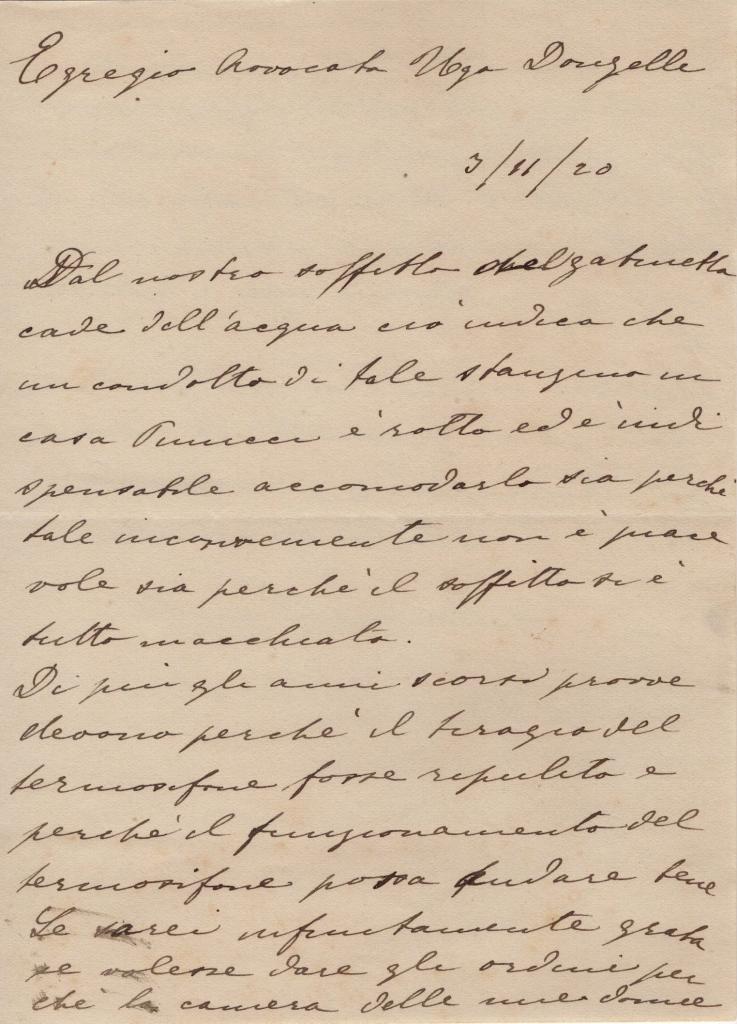 Egregio Avvocato Ugo Donzelli
3/11/20
Dal nostro soffitto del gabinetto
cade dell'acqua ciò indica che
un condotto di tale stanzino in
casa è rotto ed è indi
spensabile accomodarlo sia perchè
tale inconveniente non è piace
vole sia perchè il soffitto si è
tutto macchiato.
Di più gli anni scorsi provve
devano perchè il tiragio del
termosifone fosse ripulito e
perchè il funzionamento del
termosifone possa andare bene
Le sarei infinitamente grata
se volesse dare gli ordini per
chè la camera delle mie donne